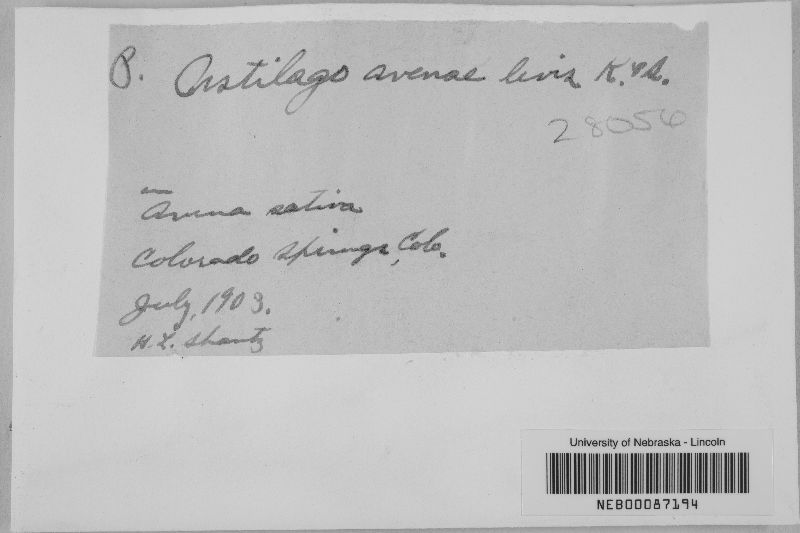 P. Ustilago avenae levis K. & S.
28056
on
Avena sativa
Colorado Springs, Colo.
July, 1903.
H. L. Shantz
University of Nebraska - Lincoln
NEB00087194